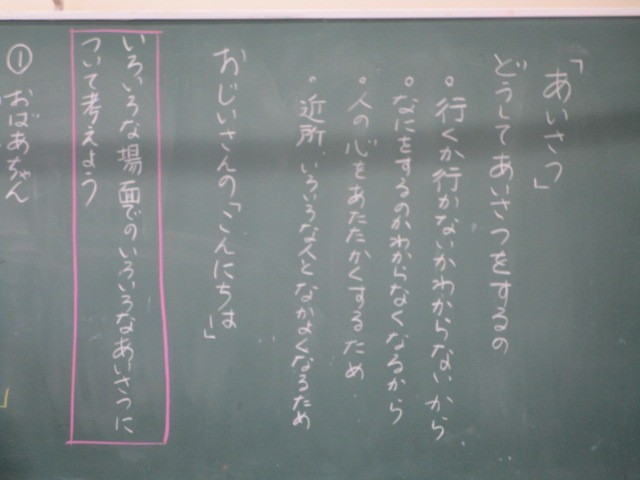 「あいさつ」
どうしてあいさつをするの
。行くか行かないかわからないから
。なにをするのかわからなくなるから
。人の心をあたたかくするため
。近所 いろいろな人となかよくなるため
おじいさんの「こんにちは」
いろいろな場面でのいろいろなあいさつに
ついて考えよう
① おばあちゃん